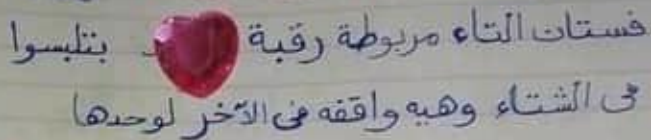 فستان التاء مربوطة رقبة بتلبسوا
فى الشتاء وهيه واقفه فى الآخر لوحدها